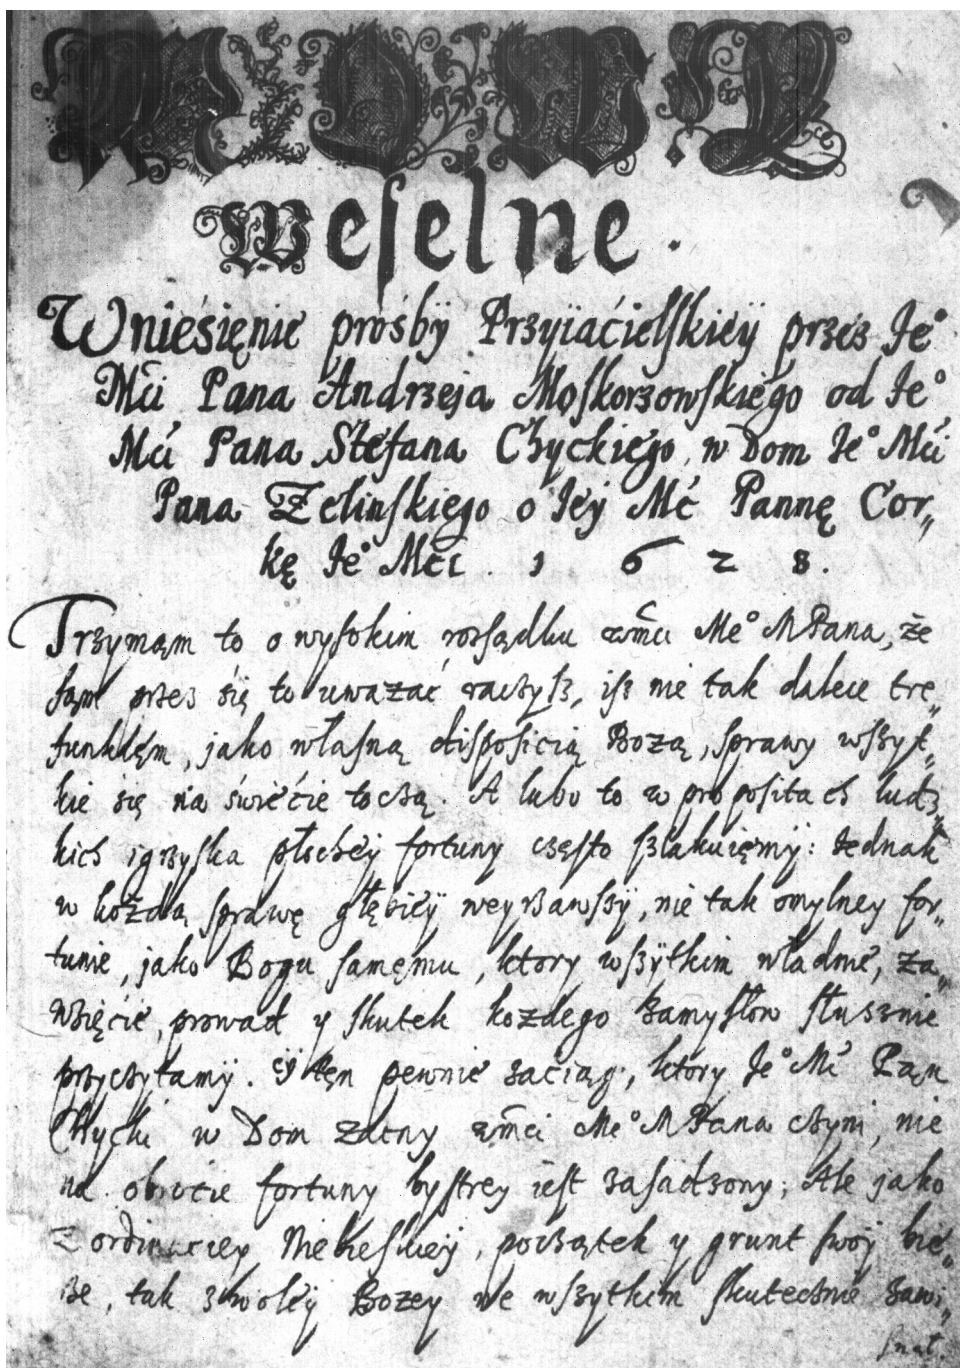 MOWY
Weselne.
Wnieśięnie prośbÿ Przyiaćielskieÿ przez Je°
Mći Pana Andrzeja Moskorzowskiego od Je°
Mći Pana Stefana Chyckiego, w Dom Je° Mći
Pana Zelinskiego o Jeÿ Mć Pannę Cor„
kę Je° Mći. 1628.
Trzymąm to o wysokim rozsądku wmći Me° MPana, że
sąm przez się to uwazać raczysz, isz nie tak dalece trę„
funkięm, jako własną disposicią Bozą, sprawy wszyt„
kie się na świećie toczą. A lubo to w propositach ludz„
kich igrzyska płochey fortuny często szlakuięmy: Jednak
w kożdą sprawę głębieÿ weyrzawszÿ, nie tak omylney for„
tunie, jako Bogu samęmu, ktory wszÿtkim władnie, za„
wzięćie, prowad y skutek kozdego zamysłow słusznie
przyczytamÿ. Y tęn pewnie zaćiąg, ktory Je° Mć Pąn
Chycki w Dom zacny wmći Me° MPana czyni, nie
na obrocie fortuny bystrey iest zasadzony; Ale jako
z ordinaciey Niebieskieÿ, początek y grunt swoÿ bie„
rze, tak z woleÿ Bozey we wszytkim skutecznie zawi„